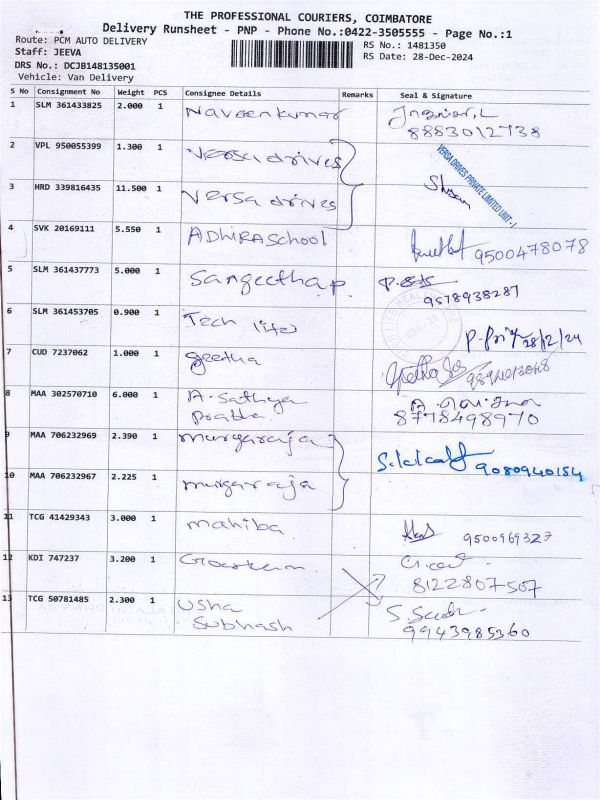 THE PROFESSIONAL COURIERS, COIMBATORE
Delivery Runsheet - PNP - Phone No.:0422-3505555 - Page No.:1
Route: PCM AUTO DELIVERY
Staff: JEEVA
DRS No.: DCJB148135001
Vehicle: Van Delivery
RS No.: 1481350
RS Date: 28-Dec-2024
S No Consignment No Weight PCS Consignee Details Remarks Seal & Signature
1 SLM 361433825 2.000 1 Naveenkumar
8883012738
2 VPL 950055399 1.300 1 Versa drives
VERSA DRIVES PRIVATE LIMITED UNIT-I
3 HRD 339816435 11.500 1 Versa drives
4 SVK 20169111 5.550 1 ADhiRA School 9500478078
5 SLM 361437773 5.000 1 Sangeetha p.
9578938287
6 SLM 361453705 0.900 1 Tech 28/12/24
7 CUD 7237062 1.000 1 geetha Geetha
8 MAA 302570710 6.000 1 A. Sathya
Prabha. 8778498970
9 MAA 706232969 2.390 1 murgaraja
9080940154
10 MAA 706232967 2.225 1 murgaraja
11 TCG 41429343 3.000 1 mahiba 9500969327
12 KDI 747237 3.200 1
8122807507
13 TCG 50781485 2.300 1 Usha
Subhash 9943985360